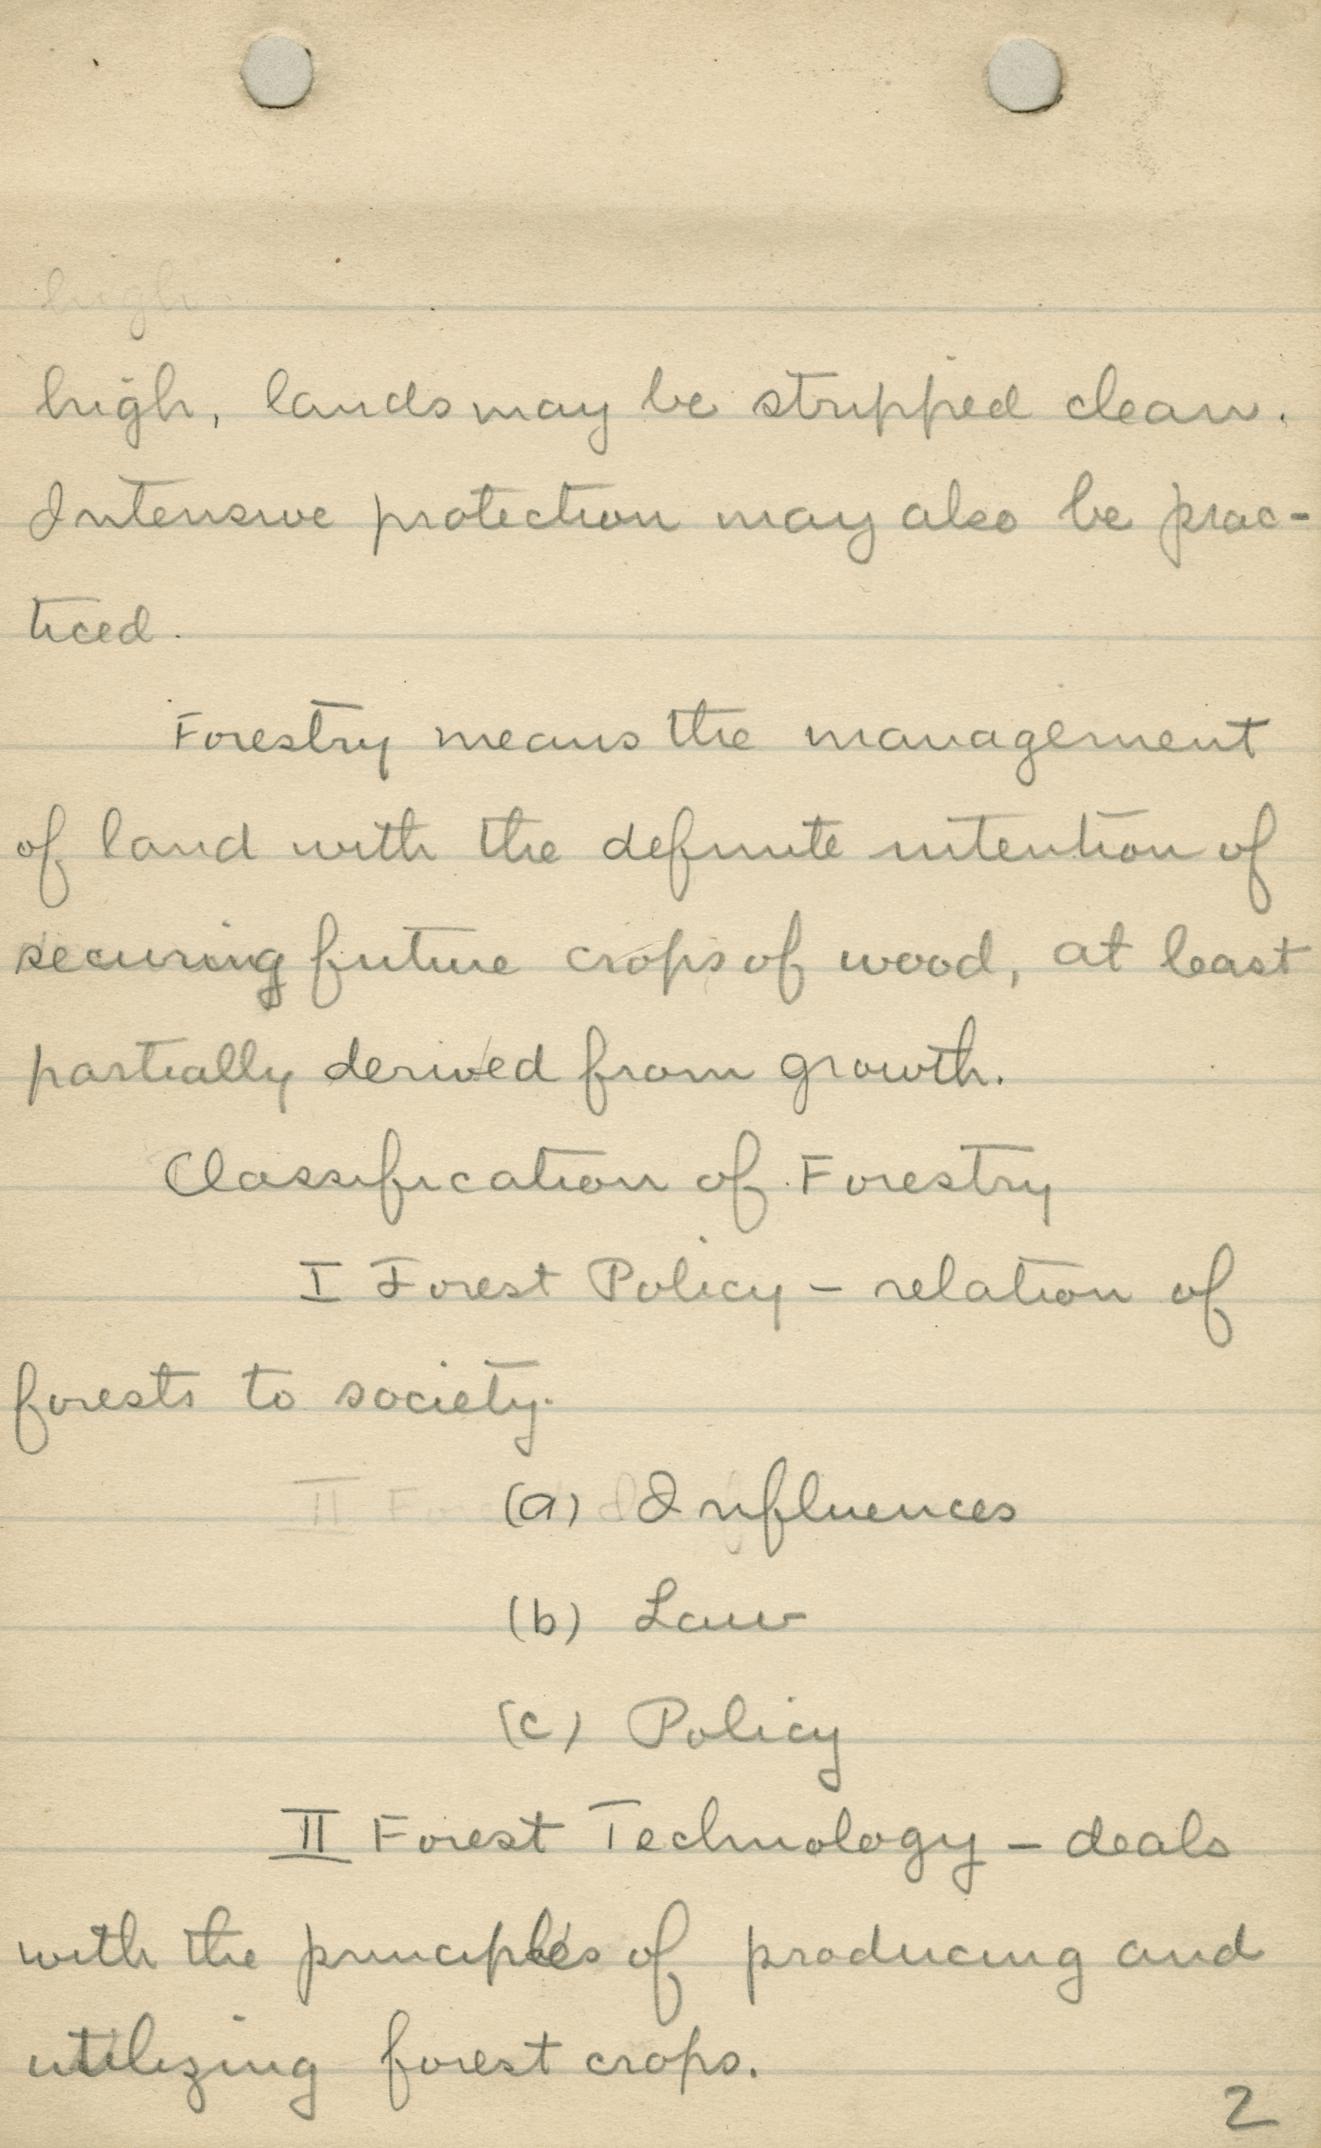 high
high, lands may be stripped clean.
Intensive protection may also be prac-
ticed.
Forestry means the management
of land with the definite intention of
securing future crops of wood, at least
partially derived from growth.
Classification of Forestry
I Forest Policy – relation of
forests to society.
(a) Influences
(b) Law
(c) Policy
II Forest Technology – deals
with the principles of producing and
utilizing forest crops.
2